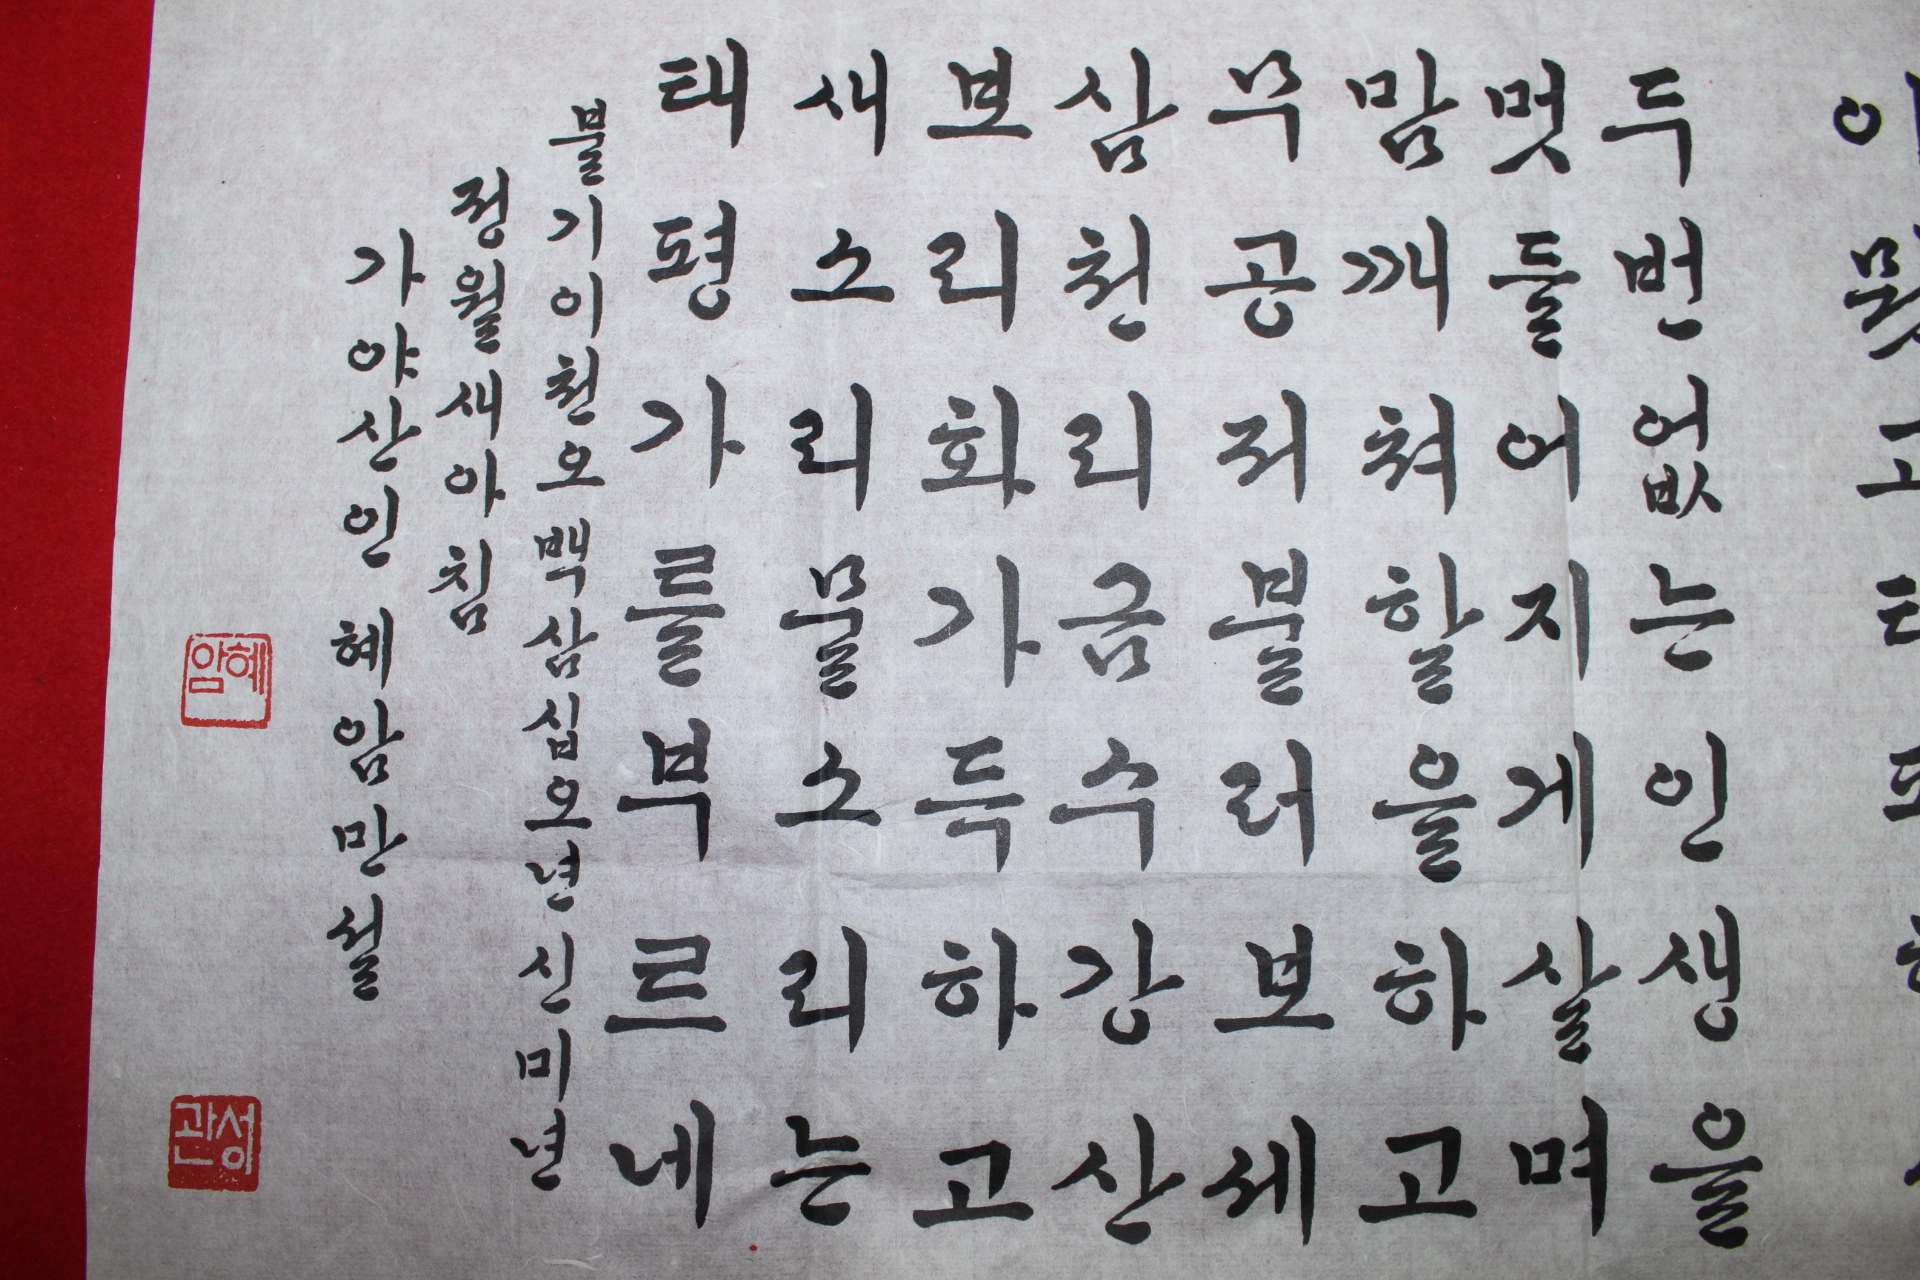 이뭣고
두번없는인생을
멋들어지게살며
맘깨쳐할을하고
무공저불러보세
삼천리금수강산
보리화가득하고
새소리물소리는
태평가를부르네
불기이천오백삼십오년신미년
정월새아침
가야산인 혜암만설
혜암
성관